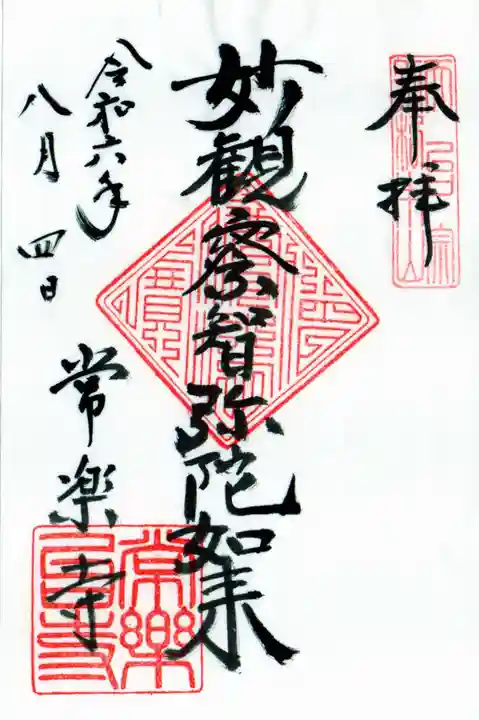 奉拝
妙観察智弥陀如来
令和六年
八月四日
常楽寺
常樂